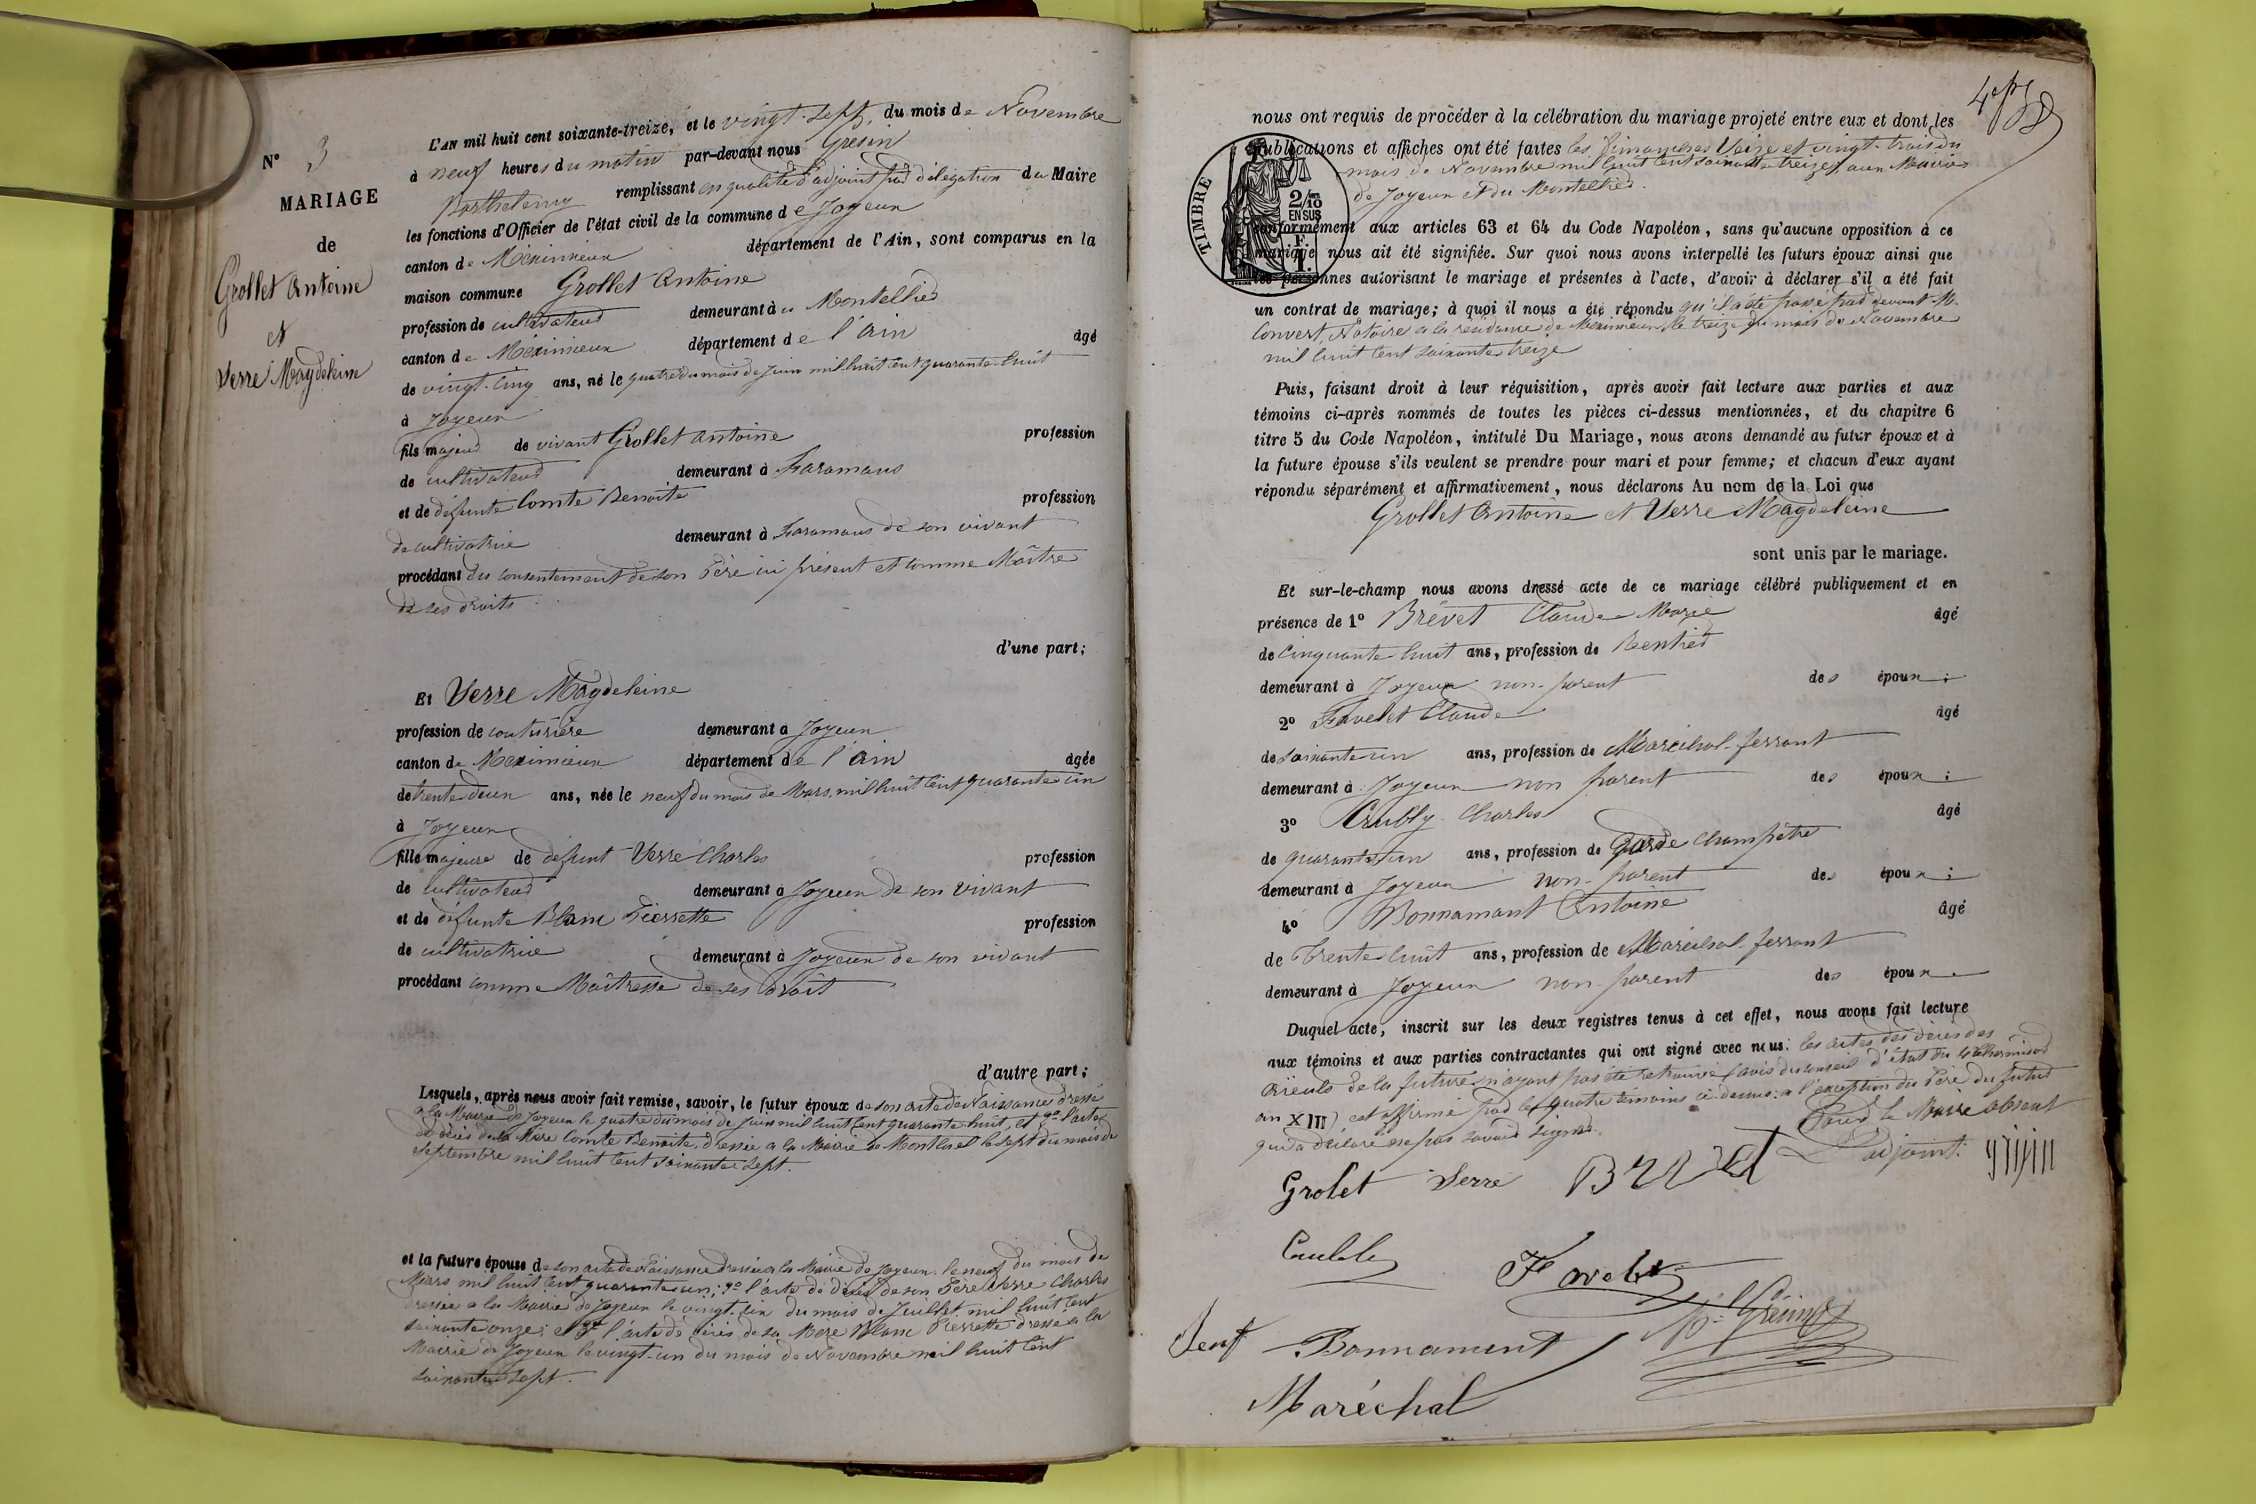 N° 3
MARIAGE
de
Grollet Antoine
et
Verre Magdeleine
L'AN mil huit cent soixante-treize, et le vingt-sept, du mois de Novembre
à neuf heures du matin par-devant nous Gresin
Barthelemy remplissant en qualité d'adjoint par délégation du Maire
les fonctions d'Officier de l'état civil de la commune de Joyeux
canton de Méximieux département de l'Ain, sont comparus en la
maison commune Grollet Antoine
profession de cultivateur demeurant à Montellier
canton de Méximieux département de l'Ain âgé
de vingt-cinq ans, né le quatre du mois de Juin mil huit cent quarante-huit
à Joyeux
fils majeur de vivant Grollet Antoine profession
de cultivateur demeurant à Faramans
et de défunte Comte Benoite profession
de cultivatrice demeurant à Faramans de son vivant
procédant du consentement de son Père ici présent et comme Maître
de ses droits.
d'une part;
Et Verre Magdeleine
profession de couturière demeurant à Joyeux
canton de Meximieux département de l'Ain âgée
de trente deux ans, née le neuf du mois de Mars, mil huit cent quarante un
à Joyeux
fille majeure de défunt Verre Charles profession
de cultivateur demeurant à Joyeux de son vivant
et de défunte Blanc Pierrette profession
de cultivatrice demeurant à Joyeux de son vivant
procédant comme Maîtresse de ses droit
d'autre part;
Lesquels, après nous avoir fait remise, savoir, le futur époux de son acte de Naissance dressé
a la Mairie de Joyeux le quatre du mois de Juin mil huit cent quarante huit, et 2° l'acte
de décès de sa Mère Comte Benoite, dressée a la Mairie de Montluel le sept du mois de
Septembre mil huit cent soixante sept.
et la future épouse de son acte de Naissance dressée a la Mairie de Joyeux le neuf du mois de
Mars mil huit cent quarante un; 2° l'acte de décès de son Père Verre Charles
dressée a la Mairie de Joyeux le vingt-un du mois de Juillet mil huit cent
soixante onze; et 3° l'acte de décès de sa Mère Blanc Pierrette dressé a la
Mairie de Joyeux le vingt-un du mois de Novembre mil huit cent
soixante sept.
nous ont requis de procéder à la célébration du mariage projeté entre eux et dont les
publications et affiches ont été faites les Dimanches Seize et vingt-trois du
mois de Novembre mil huit cent soixante treize, aux Mairies
de Joyeux et du Montellier.
TIMBRE
2/10
EN SUS
F.
1.
conformément aux articles 63 et 64 du Code Napoléon, sans qu'aucune opposition à ce
mariage nous ait été signifiée. Sur quoi nous avons interpellé les futurs époux ainsi que
les personnes autorisant le mariage et présentes à l'acte, d'avoir à déclarer s'il a été fait
un contrat de mariage; à quoi il nous a été répondu qu'il a été passé par devant M.
Convert, Notaire a la résidence de Meximieux, le treize du mois de Novembre
mil huit cent soixante treize
Puis, faisant droit à leur réquisition, après avoir fait lecture aux parties et aux
témoins ci-après nommés de toutes les pièces ci-dessus mentionnées, et du chapitre 6
titre 5 du Code Napoléon, intitulé Du Mariage, nous avons demandé au futur époux et à
la future épouse s'ils veulent se prendre pour mari et pour femme; et chacun d'eux ayant
répondu séparément et affirmativement, nous déclarons Au nom de la Loi que
Grollet Antoine et Verre Magdeleine
sont unis par le mariage.
Et sur-le-champ nous avons dressé acte de ce mariage célébré publiquement et en
présence de 1° Brevet Claude Marie âgé
de Cinquante huit ans, profession de Rentier
demeurant à Joyeux non-parent des époux;
2° Favelet Claude âgé
de soixante un ans, profession de Maréchal-ferrant
demeurant à Joyeux non parent des époux;
3° Crubly Charles âgé
de quarante un ans, profession de Garde Champêtre
demeurant à Joyeux non-parent des époux;
4° Bonnamant Antoine âgé
de Trente huit ans, profession de Maréchal-ferrant
demeurant à Joyeux non-parent des époux
Duquel acte, inscrit sur les deux registres tenus à cet effet, nous avons fait lecture
aux témoins et aux parties contractantes qui ont signé avec nous: les actes des décès des
aïeuls de la future n'ayant pas été retrouvé (avis du conseil d'état du 4 thermidor
an XIII) est affirmé par les quatre témoins ci-dessus: a l'exception du Père du futur
qui a déclaré ne pas savoir signer.
Pour le Maire absent
L'adjoint.
Grolet Verre Brevet
Favelet
Bonnament
Maréchal